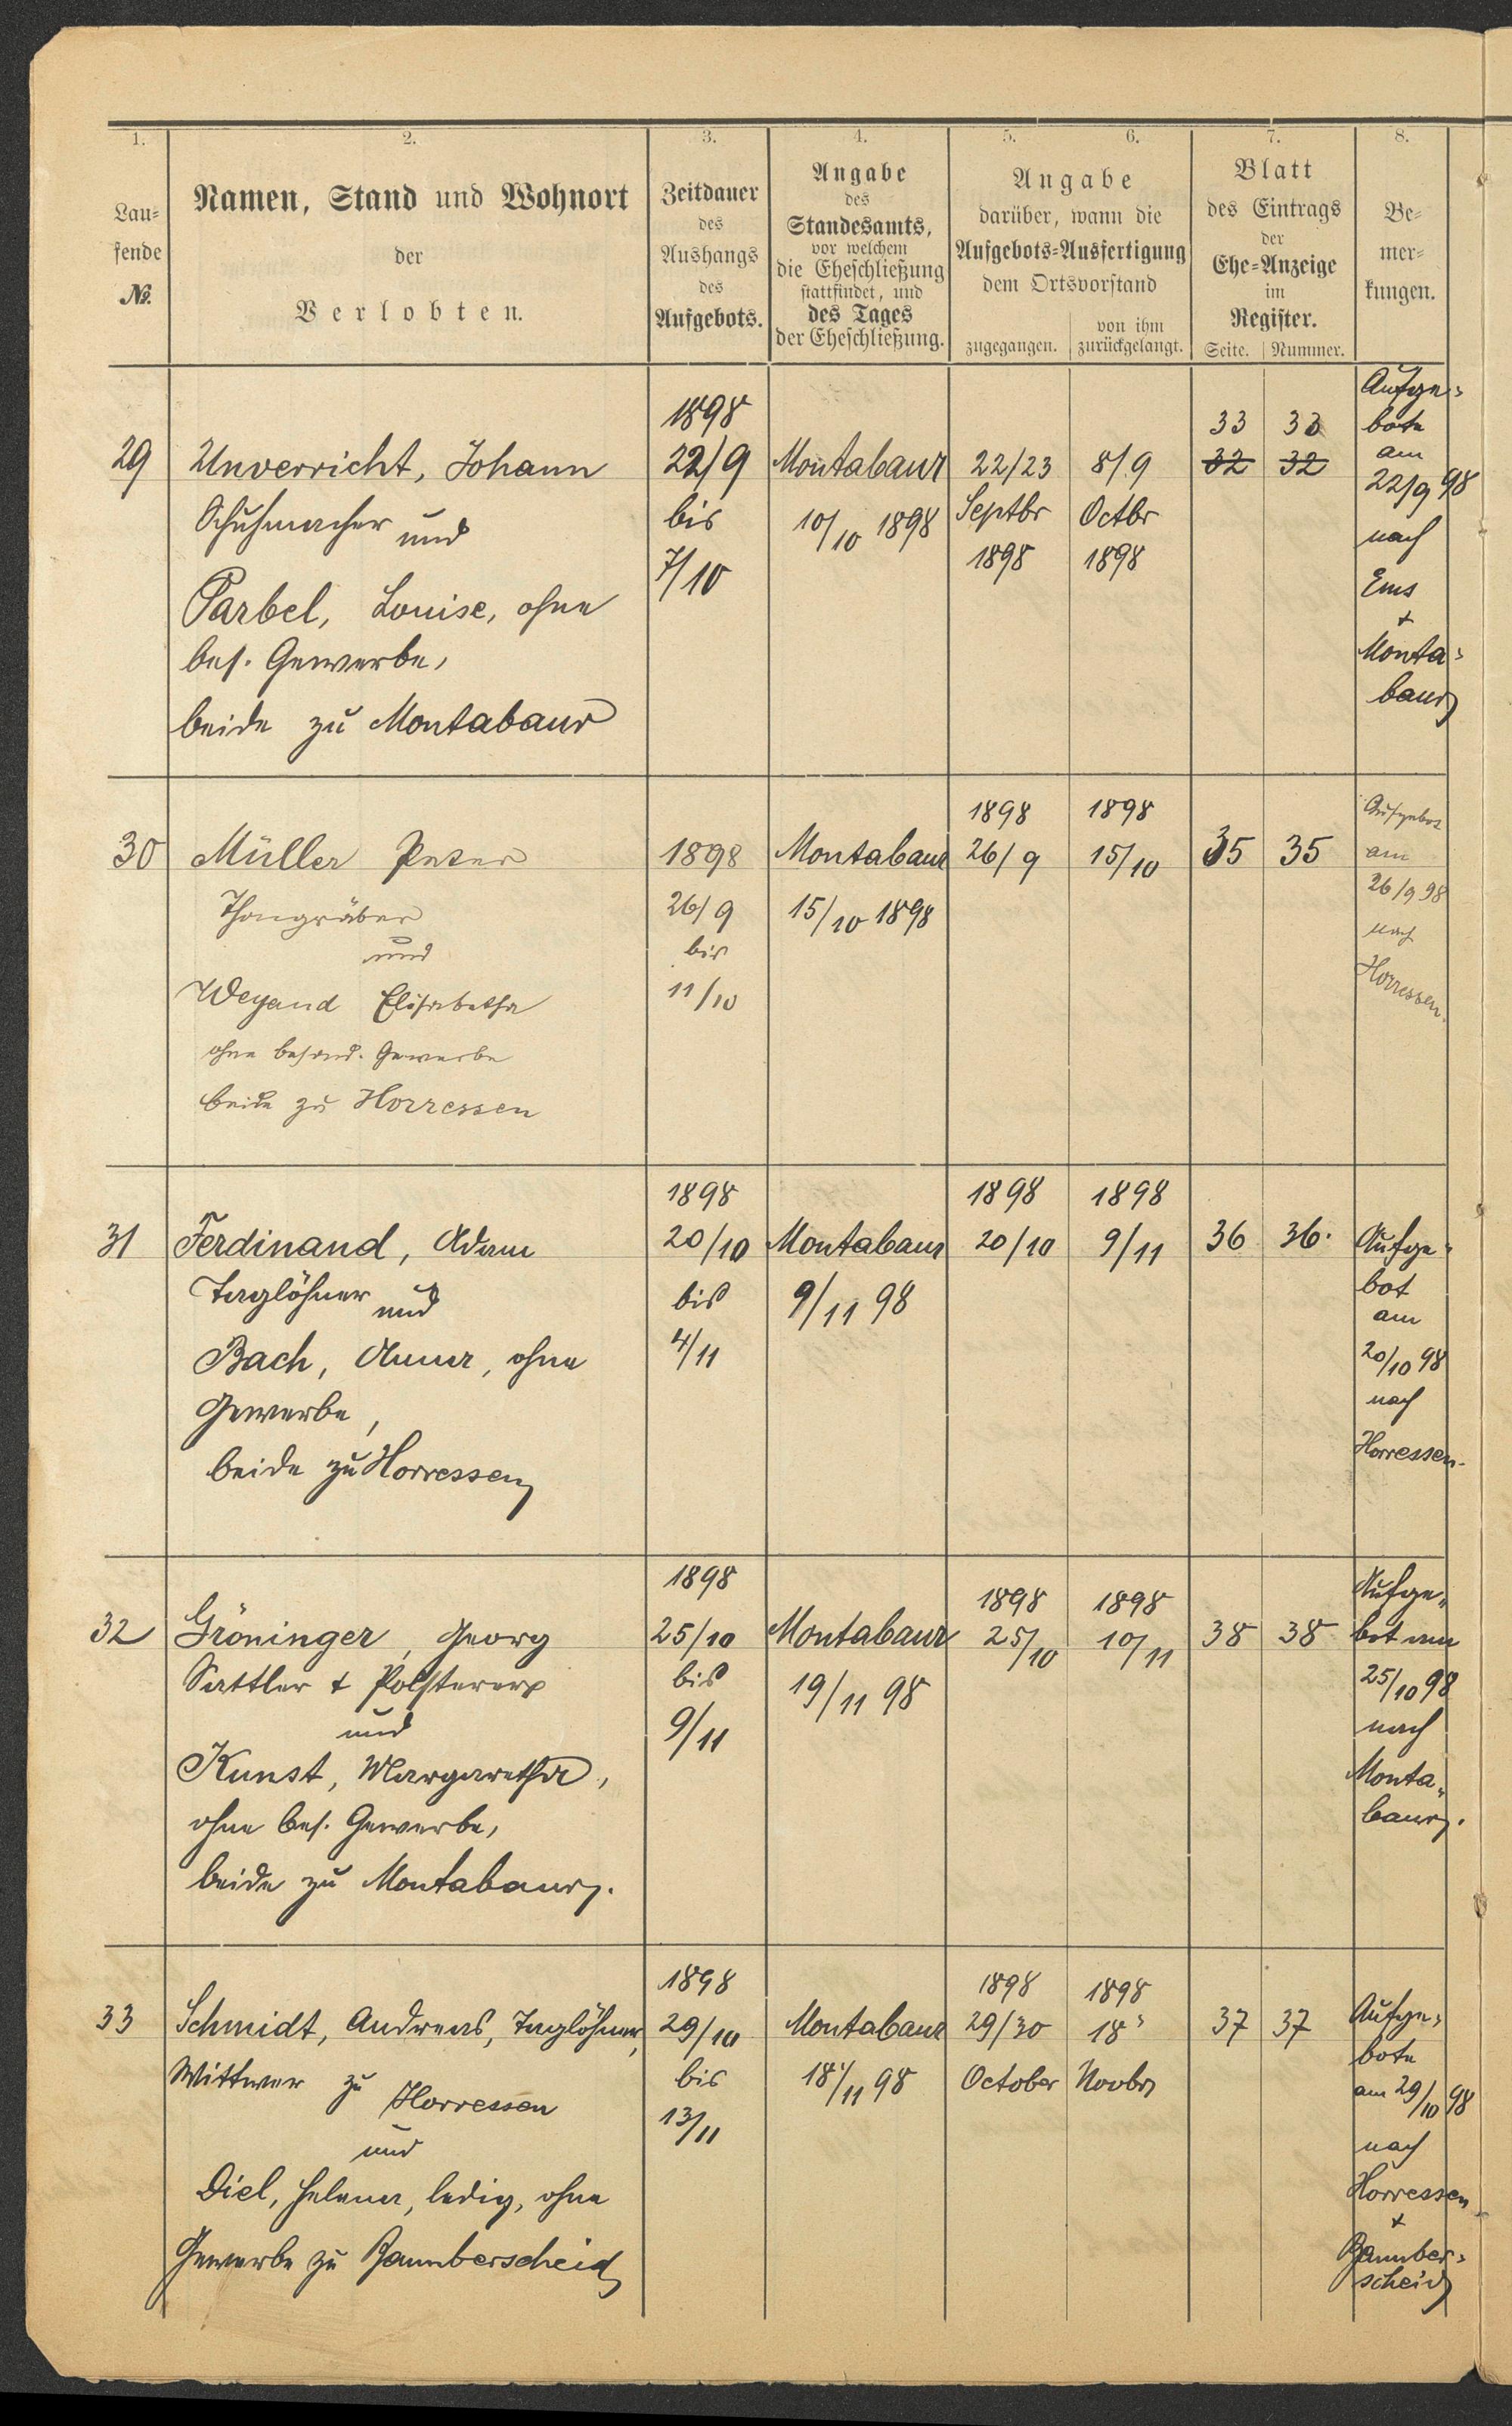 1. 2. 3. 4. 5. 6. 7. 8.
Lau=
fende
№.
Namen, Stand und Wohnort
der
Verlobten.
Zeitdauer
des
Aushangs
des
Aufgebots.
Angabe
des
Standesamts,
vor welchem
die Eheschließung
stattfindet, und
des Tages
der Eheschließung.
Angabe
darüber, wann die
Aufgebots=Ausfertigung
dem Ortsvorstand
zugegangen.
von ihm
zurückgelangt.
Blatt
des Eintrags
der
Ehe=Anzeige
im
Register.
Seite. Nummer.
Be=
mer=
kungen.
29
Unverricht, Johann
Schuhmacher und
Parbel, Louise, ohne
bes. Gewerbe,
beide zu Montabaur
1898
22/9
bis
7/10
Montabaur
10/10 1898
22/23
Septbr
1898
8/9
Octbr
1898
33 33
32 32
Aufge=
bote
am
22/9 98
nach
Ems
+
Monta=
baur
30
Müller Peter
Thongräber
und
Weyand Elisabetha
ohne besond. Gewerbe
beide zu Horressen
1898
26/9
bis
11/10
Montabaur
15/10 1898
1898
26/9
1898
15/10
35 35
Aufgebot
am
26/9 98
nach
Horressen.
31
Ferdinand, Adam
Taglöhner und
Bach, Anna, ohne
Gewerbe,
beide zu Horressen
1898
20/10
bis
4/11
Montabaur
9/11 98
1898
20/10
1898
9/11
36 36.
Aufge=
bot
am
20/10 98
nach
Horressen.
32
Gröninger, Georg
Sattler + Polsterer
und
Kunst, Margaretha,
ohne bes. Gewerbe,
beide zu Montabaur.
1898
25/10
bis
9/11
Montabaur
19/11 98
1898
25/10
1898
10/11
38 38
Aufge=
bot am
25/10 98
nach
Monta=
baur.
33
Schmidt, Andreas, Taglöhner,
Wittwer zu Horressen
und
Diel, Helena, ledig, ohne
Gewerbe zu Bannberscheid
1898
29/10
bis
13/11
Montabaur
18/11 98
1898
29/30
October
1898
18
Novbr
37 37
Aufge=
bote
am 29/10 98
nach
Horressen
+
Bannber=
scheid